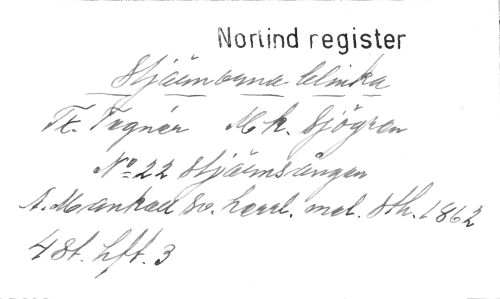 Norlind register
Stjärnorna blinka
Tx. Tegnér Mk. Sjögren
No 22 Stjärnsången
A. Mankell Sv. herrl. mel. Sth. 1862
4 St. hft. 3